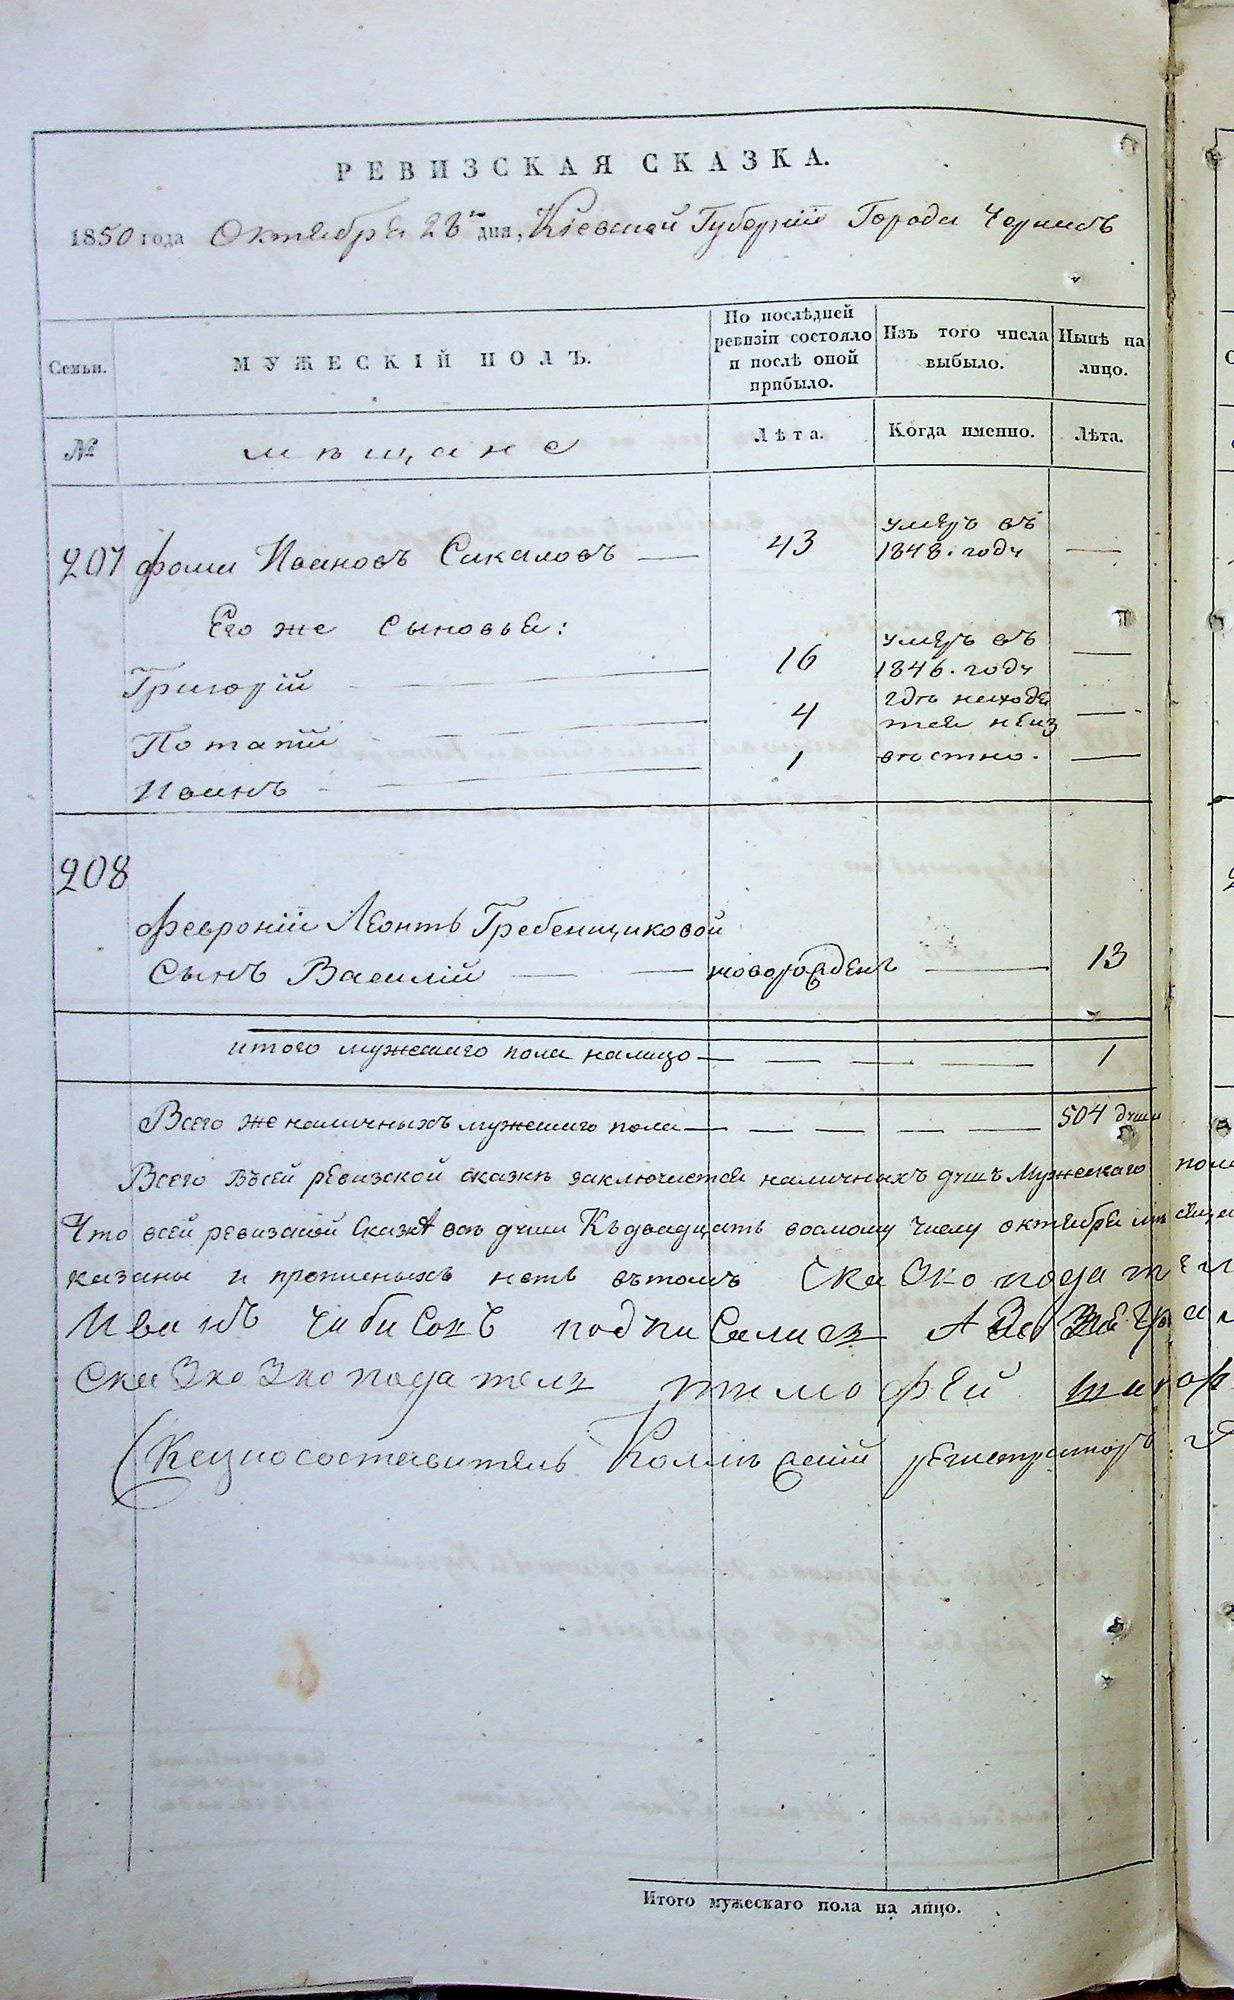 РЕВИЗСКАЯ СКАЗКА.
1850 года Октября 28го дня, Кіевской Губерніи Города
Семьи.
МУЖЕСКІЙ ПОЛЪ.
По послѣдней ревизіи состояло и послѣ оной прибыло.
Изъ того числа выбыло.
Нынѣ на лицо.
№
мѣщане
Лѣта.
Когда именно.
Лѣта.
207 Фома Ивановъ Сакаловъ — 43 умеръ въ 1848. году —
Его же сыновья:
Григорій — 16 умеръ въ 1846. году —
Потапій — 4 гдѣ находя
тся неиз —
Иванъ — 1 вѣстно. —
208
Февроніи Леонтѣ Гребенщиковой
Сынъ Василій — — новорожденъ — 13
итого мужескаго пола налицо — — — — 1
Всего же наличныхъ мужескаго пола — — — — — 504 души
Всего въ сей ревизской сказкѣ заключается наличныхъ душъ Мужескаго пола
Что всей ревизской Сказкѣ всѣ души Къ двадцать восмому Числу октября мѣсяца
казаны и прописныхъ нетъ вътомъ Сказкоподател
Иванъ Чибисовъ подписался
Сказкозкоподатель тимофей
Коллежскій регистраторъ
Итого мужескаго пола на лицо.